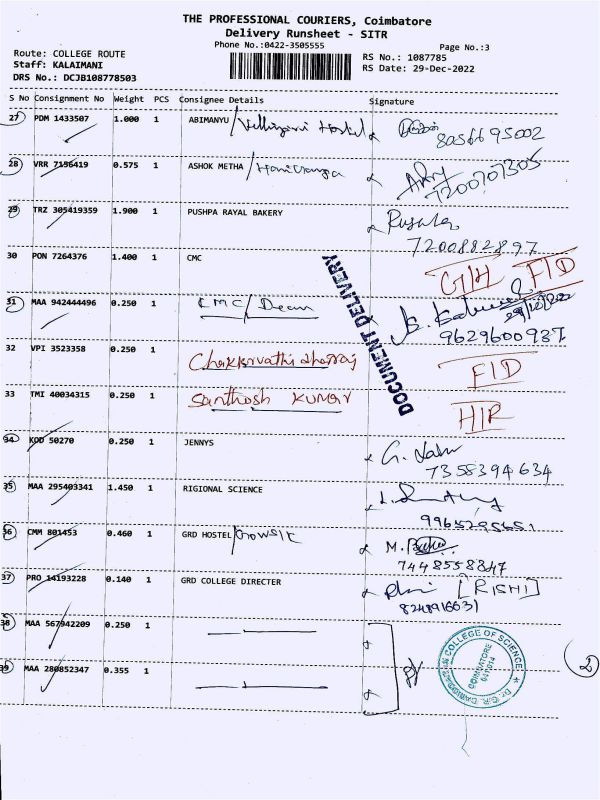 THE PROFESSIONAL COURIERS, Coimbatore
Delivery Runsheet - SITR
Phone No.:0422-3505555
Page No.:3
Route: COLLEGE ROUTE
Staff: KALAIMANI
DRS No.: DCJB108778503
RS No.: 1087785
RS Date: 29-Dec-2022
S No Consignment No Weight PCS Consignee Details Signature
27 PDM 1433507 1.000 1 ABIMANYU / Hostel
8056695002
28 VRR 7156419 0.575 1 ASHOK METHA /
7200707305
29 TRZ 305419359 1.900 1 PUSHPA RAYAL BAKERY
7200882897
30 PON 7264376 1.400 1 CMC
G/H F/D
31 MAA 942444496 0.250 1 CMC/Dean
9629600987
DOCUMENT DELIVERY
32 VPI 3523358 0.250 1
F/D
33 TMI 40034315 0.250 1 Santhosh KUMAR
H/R
34 KOD 50270 0.250 1 JENNYS
7358394634
35 MAA 295403341 1.450 1 RIGIONAL SCIENCE
36 CMM 801453 0.460 1 GRD HOSTEL/
7448558847
37 PRO 14193228 0.140 1 GRD COLLEGE DIRECTER
[RISHI]
8248916631
38 MAA 567942209 0.250 1
39 MAA 280852347 0.355 1
COLLEGE OF SCIENCE
COIMBATORE
641014
2